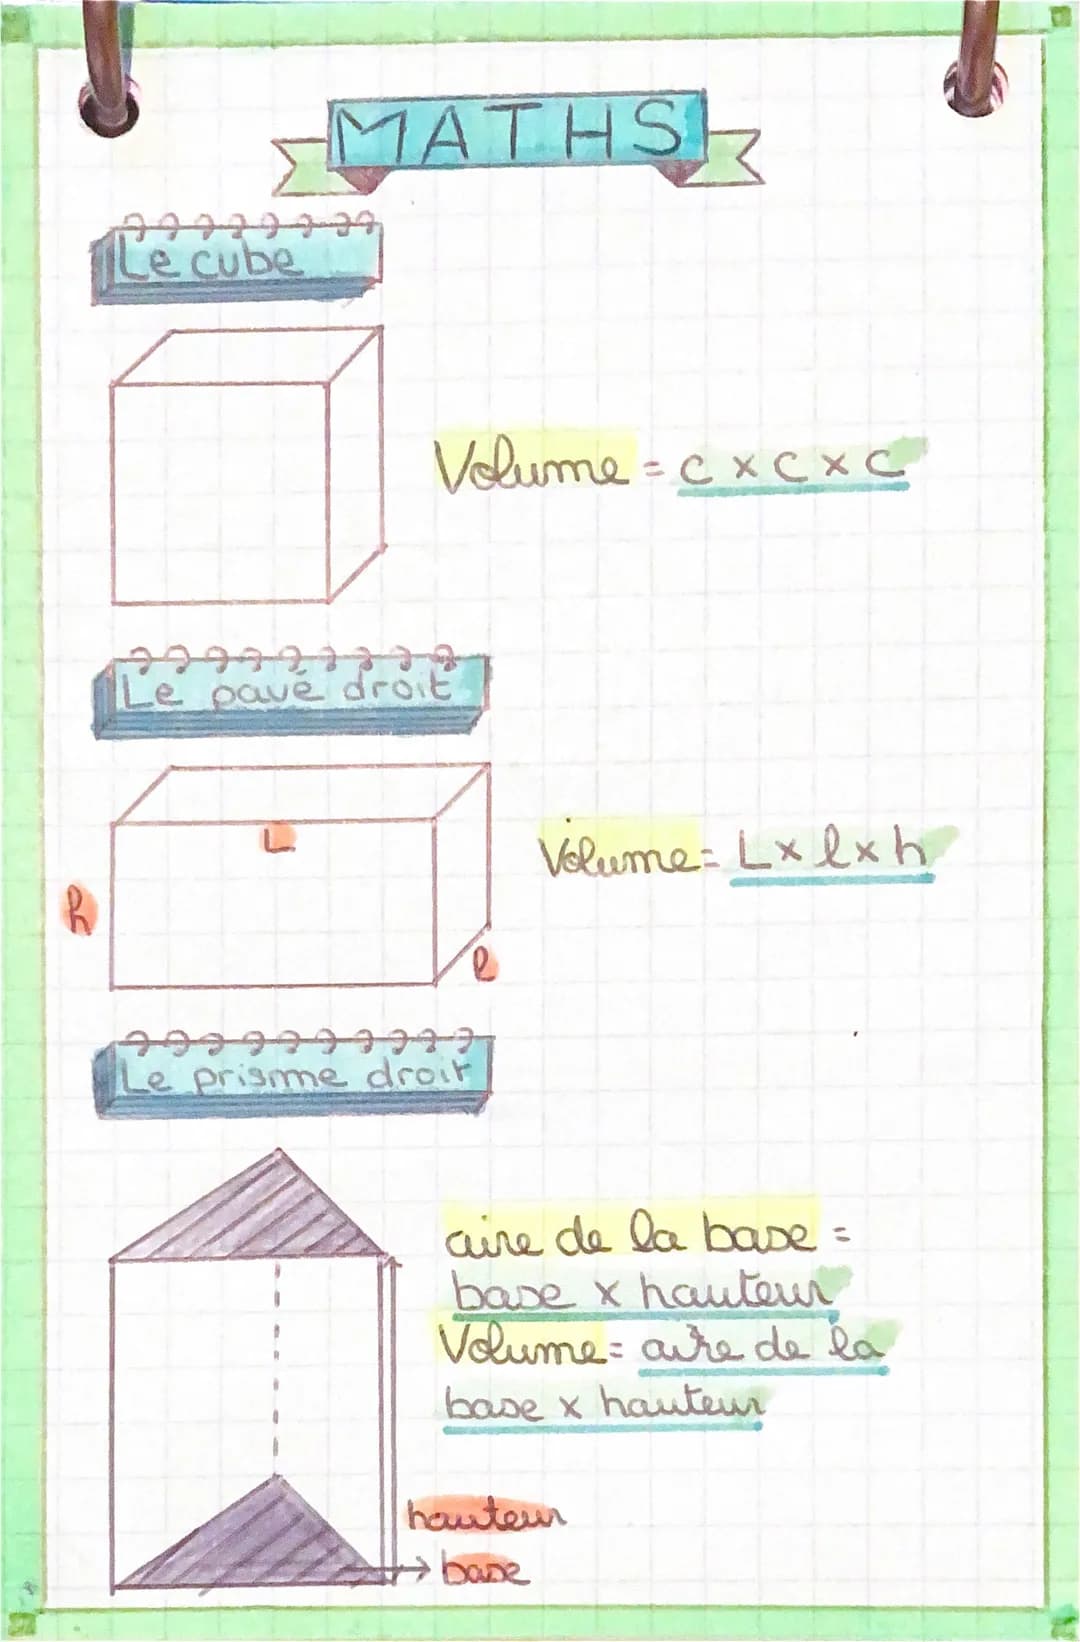 MATHS
Le cube
Volume = c x c x c
Le pavé droit
L
h
l
Volume = L x l x h
Le prisme droit
aire de la base =
base x hauteur
Volume = aire de la
base x hauteur
hauteur
base